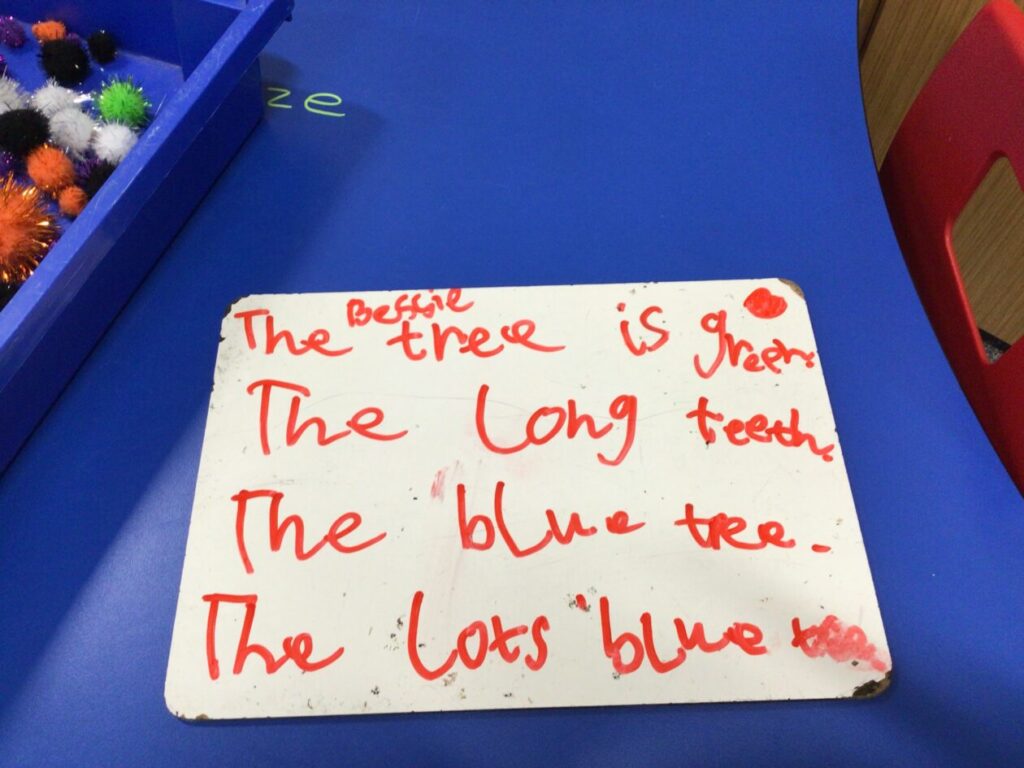 ze
Bessie
The tree is green.
The long teeth.
The blue tree.
The lots blue tree